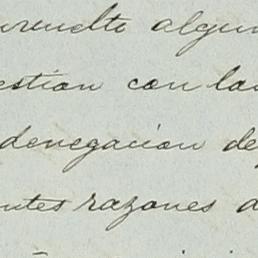 urvuelto algun
estion con la
denegacion de
ntes razones a